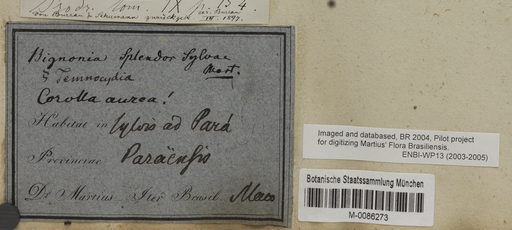 Prodr. Com. IX p. 154
von Bureau & Schumann zurückgek. IV. 1897.
Bignonia splendor sylvae
Mart.
§ Temnocydia
Corolla aurea!
Habitat in sylvis ad Pará
Provinciae Paraënsis
Dr Martius Iter Brasil.
Imaged and databased, BR 2004, Pilot project
for digitizing Martius' Flora Brasiliensis.
ENBI-WP13 (2003-2005)
Botanische Staatssammlung München
M-0086273